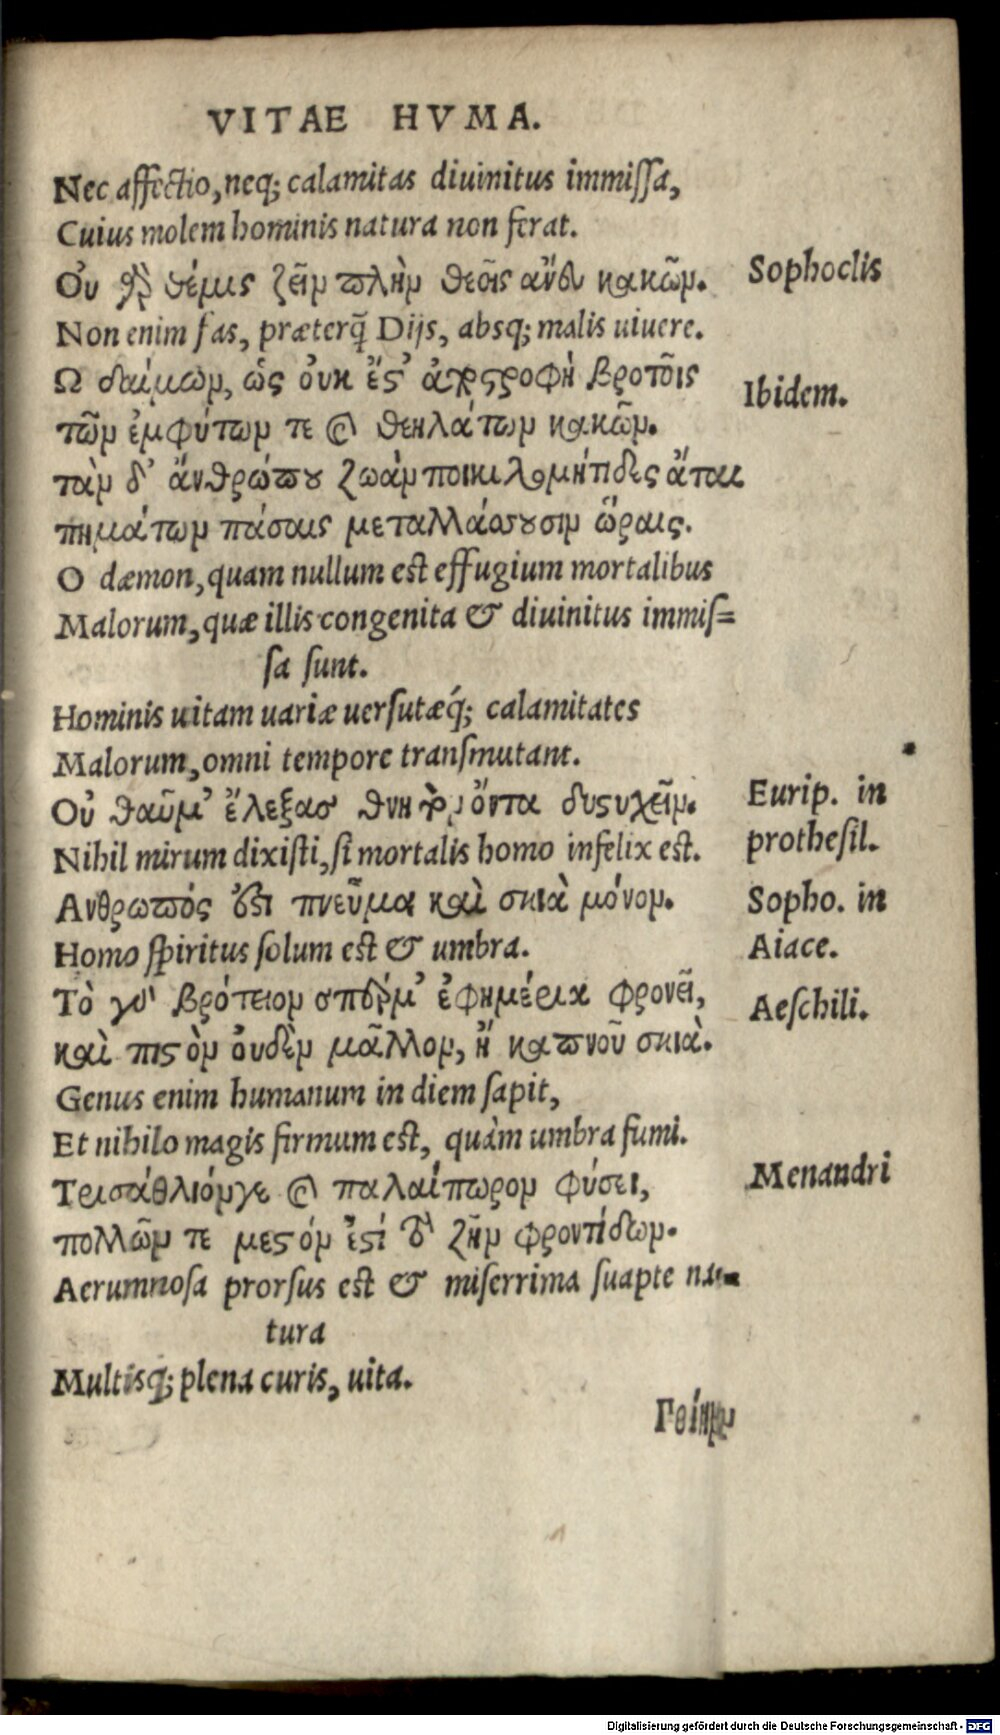 VITAE HVMA.
Nec affectio, neq; calamitas diuinitus immiſſa,
Cuius molem hominis natura non ferat.
Οὐ γὰρ θέμις ζεῖν πλὴν θεοῖς ἄνευ κακῶν. Sophoclis
Non enim fas, præterq̃ Dijs, absq; malis uiuere.
Ω δαίμων, ὡς οὐκ ἔς' ἀποςροφὴ βροτοῖς Ibidem.
τῶν ἐμφύτων τε καὶ θεηλάτων κακῶν.
τὰν δ' ἄνθρώπου ζωὰν ποικιλομήτιδες ἄται
πημάτων πάσαις μεταλλάσσουσιν ὥραις.
O dæmon, quam nullum est effugium mortalibus
Malorum, quæ illis congenita & diuinitus immiſ=
ſa ſunt.
Hominis uitam uariæ uerſutæq́; calamitates
Malorum, omni tempore tranſmutant.
Οὐ θαῦμ' ἔλεξας θνητὸν ὄντα δυςυχεῖν. Eurip. in
Nihil mirum dixiſti, ſi mortalis homo infelix est. protheſil.
Ανθρωπός ἐςι πνεῦμα καὶ σκιὰ μόνον. Sopho. in
Homo ſpiritus ſolum est & umbra. Aiace.
Τὸ γὰρ βρότειον σπέρμ' ἐφημέρια φρονεῖ, Aeſchili.
καὶ πιςὸν οὐδὲν μᾶλλον, ἢ καπνοῦ σκιὰ.
Genus enim humanum in diem ſapit,
Et nihilo magis firmum est, quàm umbra fumi.
Τρισάθλιόνγε καὶ ταλαίπωρον φύσει, Menandri
πολλῶν τε μεςόν ἐςί τὸ ζῆν φροντίδων.
Aerumnoſa prorſus est & miſerrima ſuapte na=
tura
Multisq; plena curis, uita.